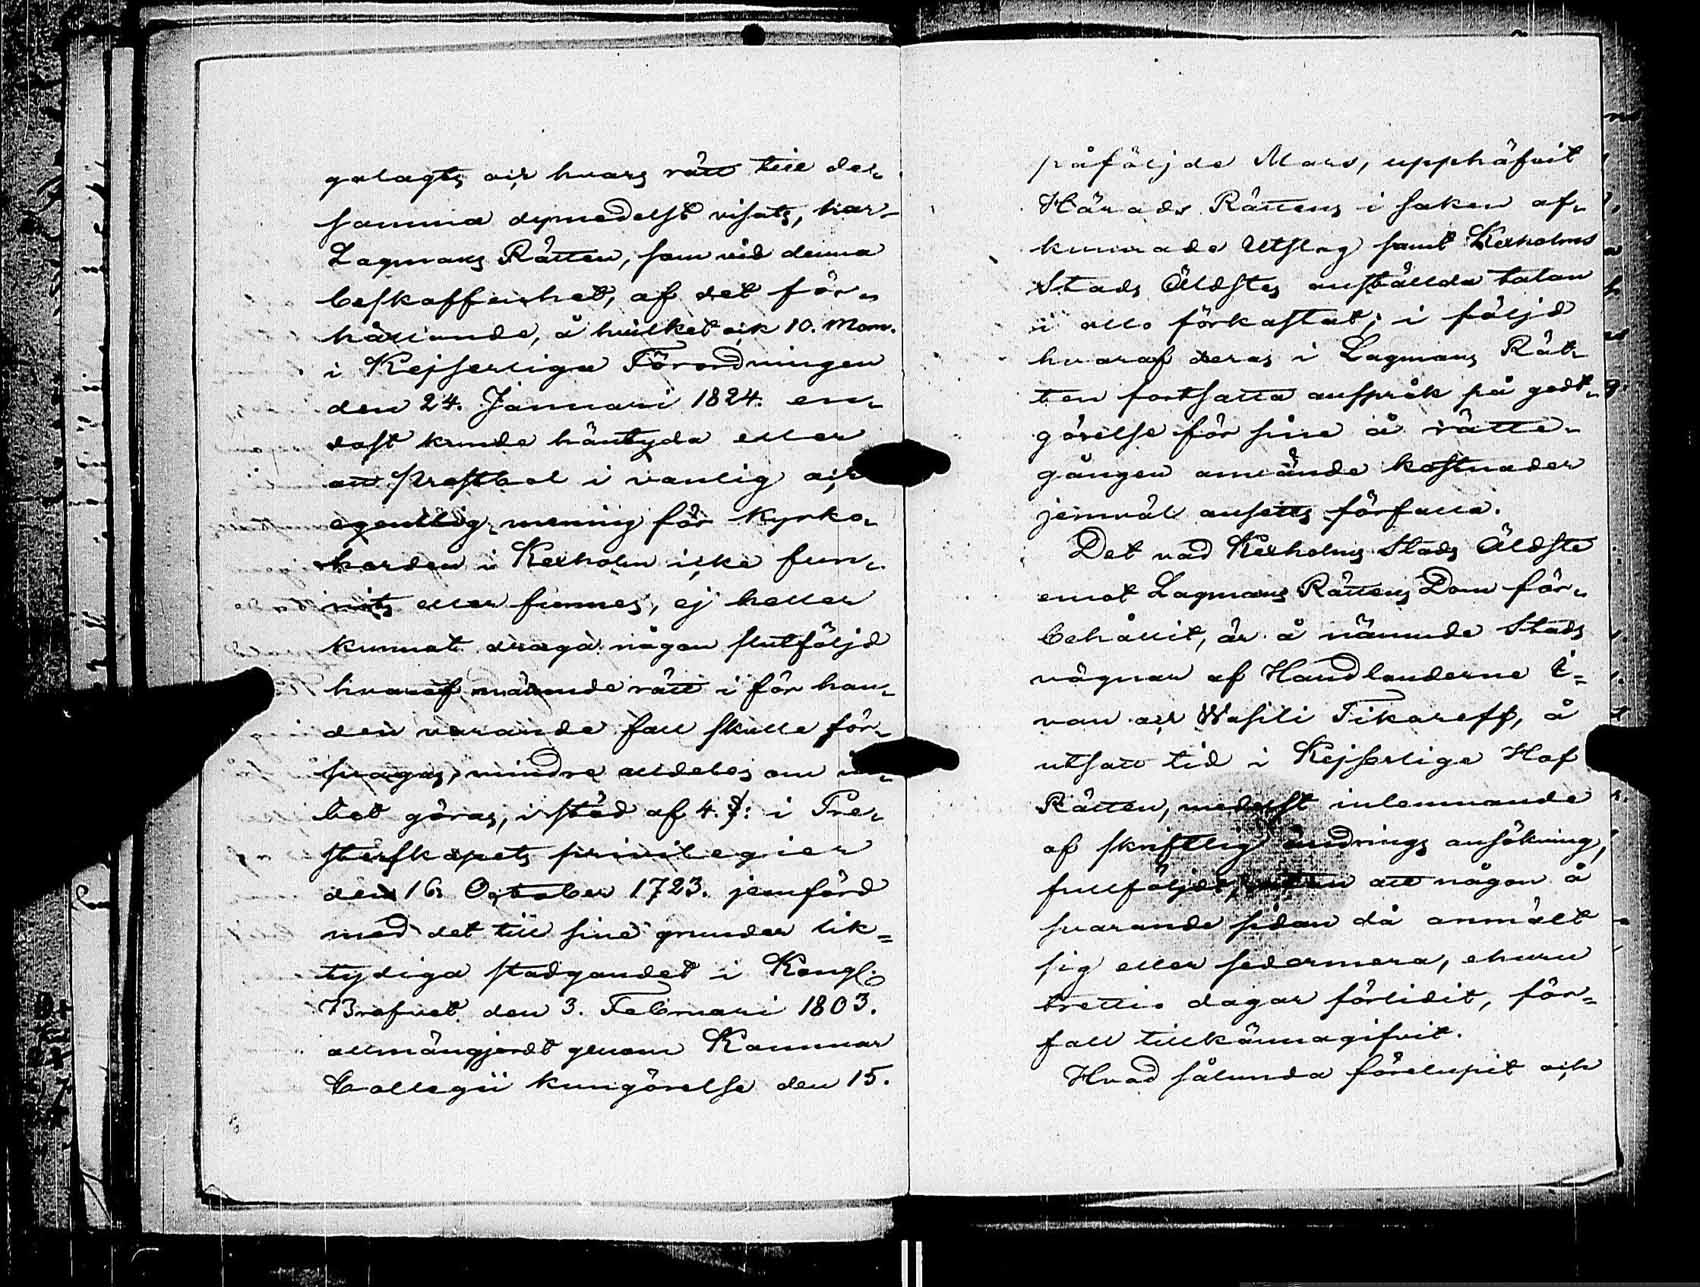 galagts och hvars rätt till der-
samma dymedelst visats, har
Lagmans Rätten, som vid denna
beskaffenhet, af det för-
hållande, å hvilket och 10. Mom.
i Kejserliga Förordningen
den 24. Januari 1824. en-
dast kunde häntyda eller
att Prestbol i vanlig och
egentlig mening för Kyrko-
herden i Kexholm icke fun-
nits eller finnes, ej heller
kunnat draga någon slutföljd
hvaraf nämnde rätt i för han-
den varande fall skulle för-
svagas, mindre alldeles om in-
tet göras, i stöd af 4. §: i Pre-
sterskapets privilegier
den 16. October 1723. jemförd
med det till sine grunder lik-
tydiga stadgandet i Kongl.
Brefvet den 3. Februari 1803.
allmängjordt genom Kammar
Collegii kungörelse den 15.
påföljde Mars, upphäfvit
Härads Rättens i saken af-
kunnade Utslag samt Kexholms
Stads Äldstes anställda talan
i allo förkastat; i följd
hvaraf deras i Lagmans Rät-
ten fortsatta anspråk på godt-
görelse för sine å rätte-
gången använde kostnader
jemväl ansetts förfalla.
Det vad Kexholms Stads Äldste
emot Lagmans Rättens Dom för-
behållit, är å nämnde Stads
vägnar af Handlanderne I-
van och Wasili Tikareff, å
utsatt tid i Kejserlige Hof
Rätten, medelst inlemnande
af skriftlig ändrings ansökning,
fullföljdt, utan att någon å
svarande sidan då anmält
sig eller sedermera, ehuru
trettio dagar förlidit, för-
fall tillkännagifvit.
Hvad sålunda förelupit och